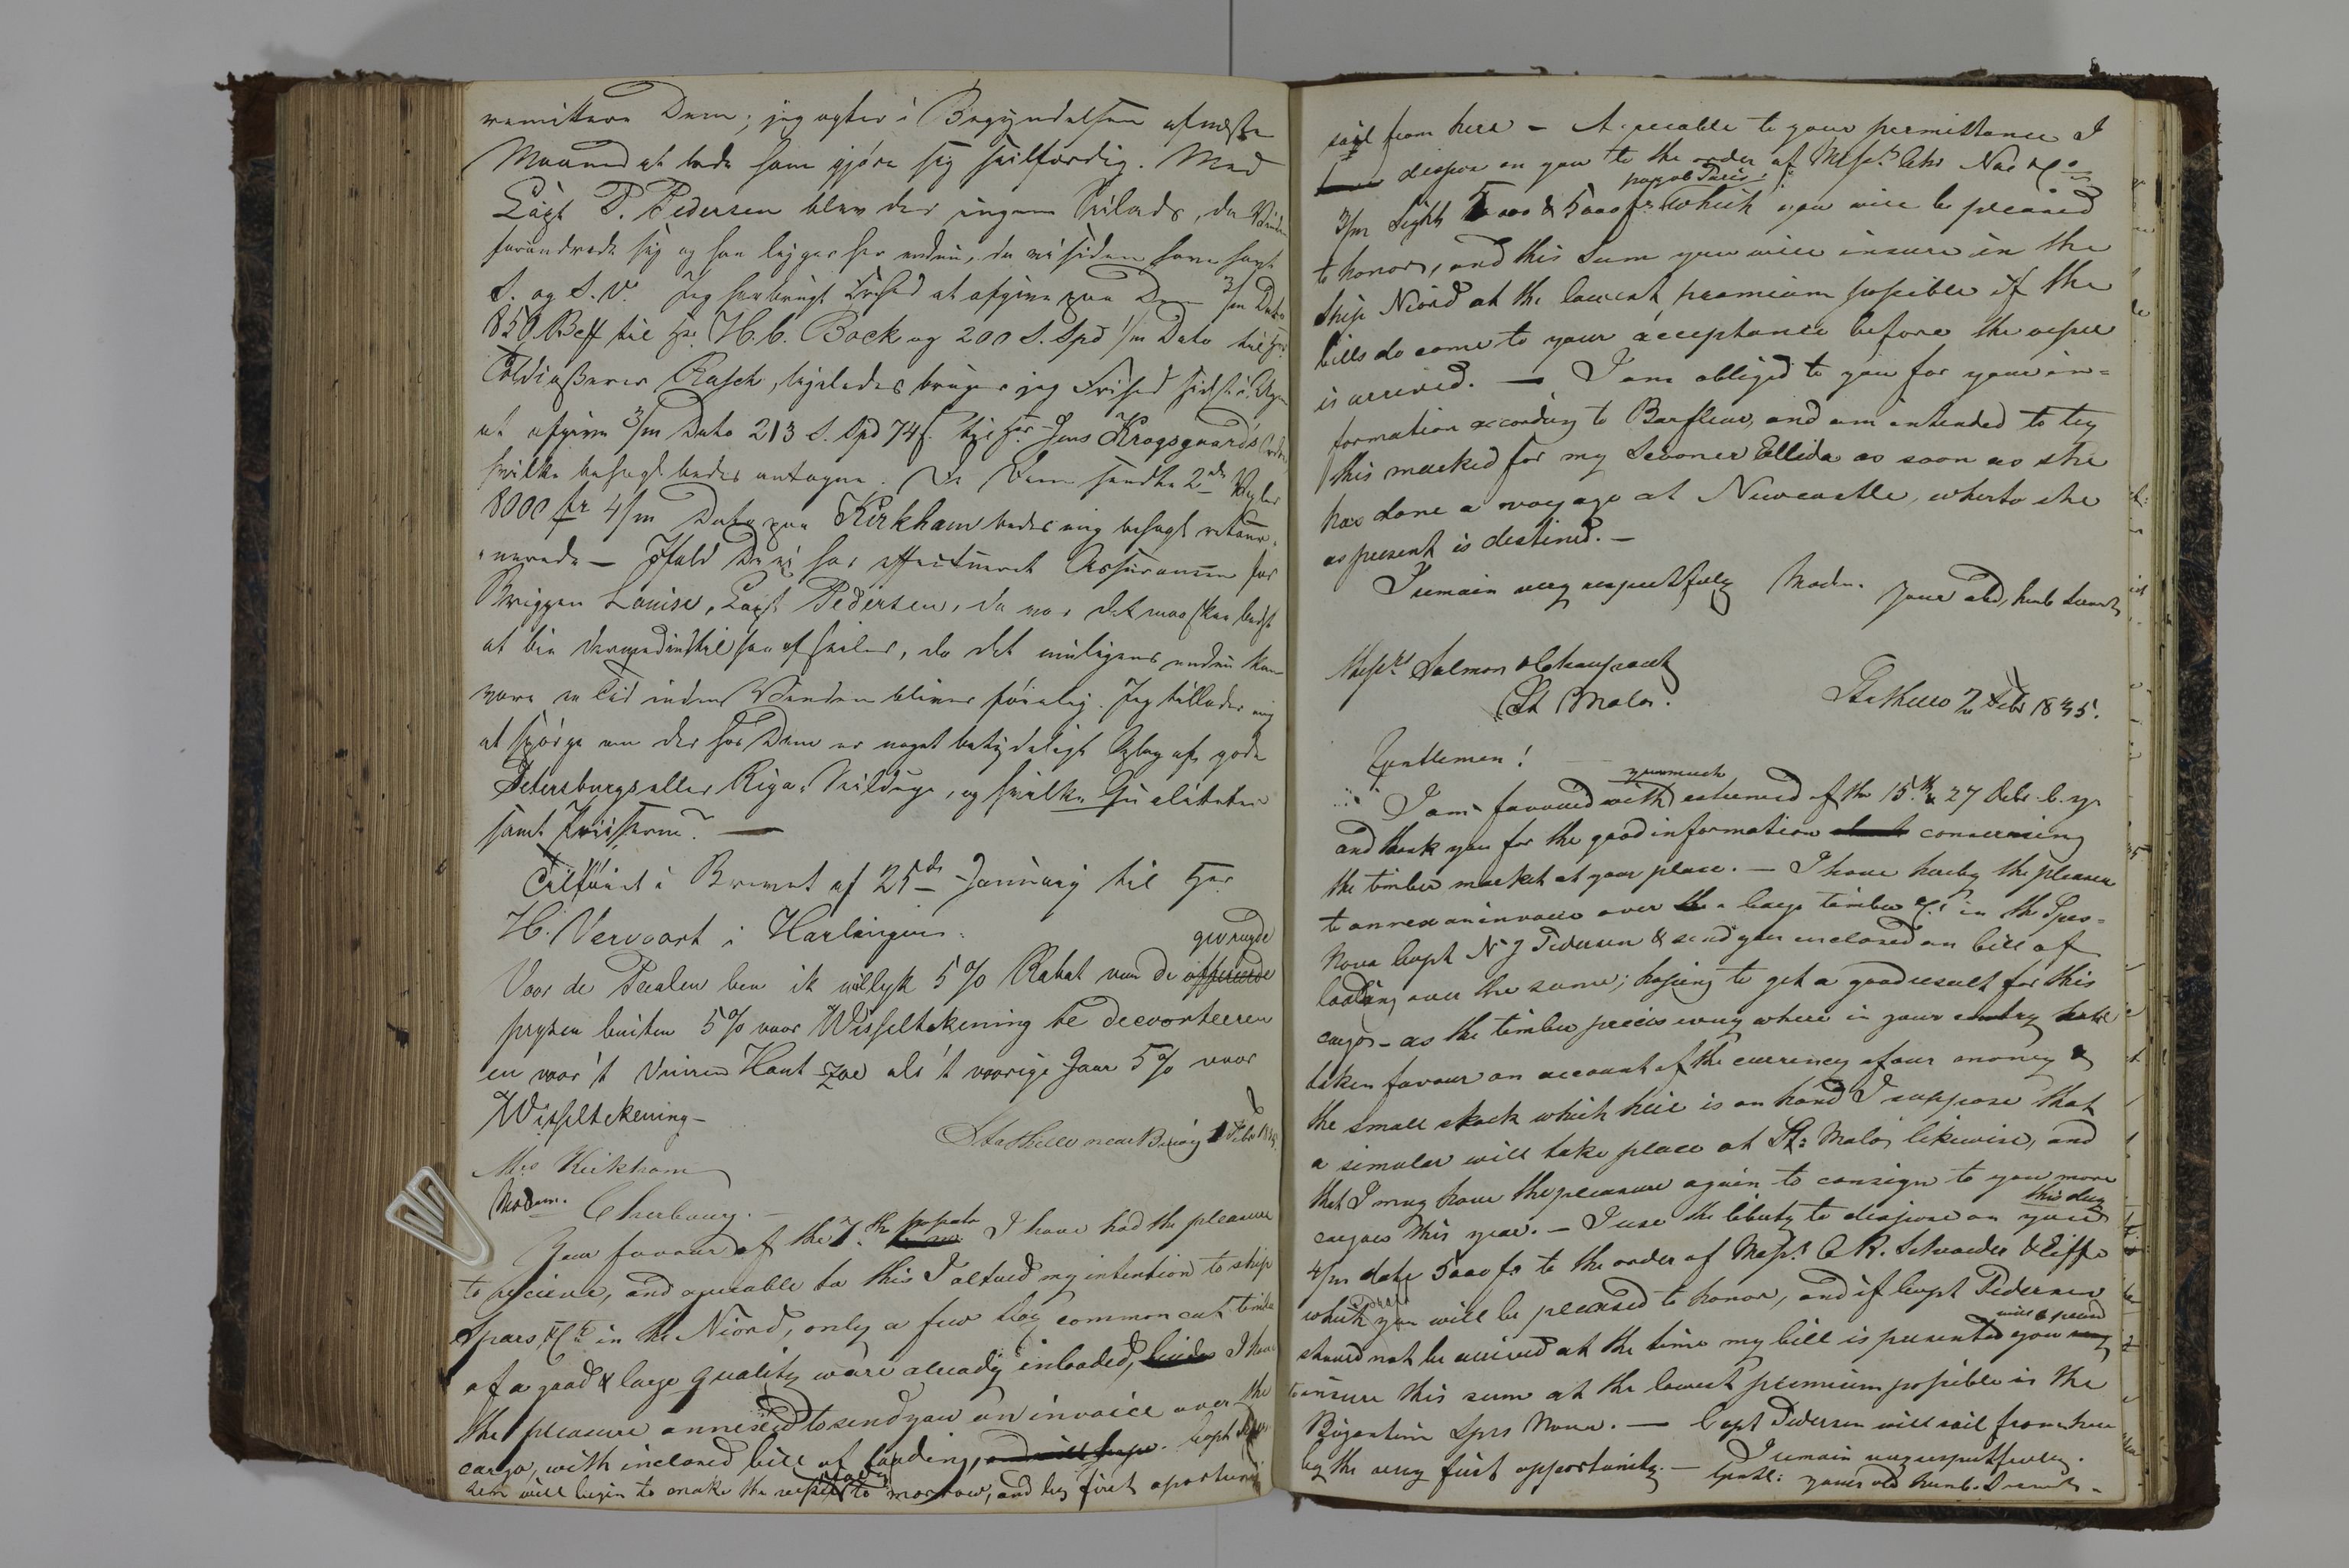 remittere Dem; jeg agter i Begyndelsen af næste
Maaned at lade ham gjøre sig seilfærdig. Med
Capt P. Pedersen blev der ingen Seilads, da Vinden
forandrede sig og han ligger her endnu, da vi siden have havt
S. og S.V. Jeg har brugt Frihed at afgive paa Dem 3/m Dato
850 Bco til Hr. H.C. Bock og 200 S. Spd 1/m Dato til Hr.
Toldinspecteur Rasch, ligeledes bruger jeg Frihed
at afgive 3/m Dato 213 S. Spd 74 s. til Hr. Jens Krogsgaards Ordre
hvilke behageligst bedes antagne. De Dem sendte 2de Vexler
8000 fr 4/m Dato paa Kirkham bedes mig behagl retour-
nerede — Ifald De ei har effectueret Assurancen for
Briggen Louise, Capt Pedersen, da var det maaskee bedst
at bie dermed indtil han afseiler, da det muligens endnu kan
vare en Tid inden Vinden bliver føielig. Jeg tillader mig
at spørge om der hos Dem er noget betydeligt Oplag af gode
Petersburgs eller Riga Seilduge, og hvilke Qualiteter
samt Priiserne? —
Tilføiet i Brevet af 25de January til Herr
H. Vervoort i Harlingen.
Voor de Paalen ben ik willyk 5 % Rabat van de offererede gevraagde
prysen buiten 5 % voor Wisseltekening te decorteeren
en voor 't Vuiren Hout zoo als 't voorige Jaar 5 % voor
Wisseltekening —
Stathelle near Brevig 1 Febr 1835.
Mrs Kirkham
Madam. Cherbourg. —
Your favour of the 7th passato I have had the pleasure
to recieve, and agreable to this I altered my intention to ship
Spars &c in the Niord, only a few log common cut timber
of a good & large quality ware already inloaded, I have
the pleasure annexed to send you an invoice over the
cargo, with inclosed bill of loading, and will hope. Capt
will begin to make the vessel ready to morrow, and by first oportunity
sail from here — Agreeable to your permittance I
dispose on you to the order of Messrs
3/m Sight 5000 & 5000 fr. payab Paris: which you will be pleased
to honor, and this Sum you will insure in the
Ship Niord at the lowest premium possible if the
bills do come to your acceptance before the vessel
is arrived. — I am obliged to you for your in=
formation according to Barfleur, and am intended to try
this marked for my Scooner Ellida as soon as she
has done a voyage at Newcastle, wherto she
as present is destined. —
I remain very respectfuly Madm. Your obd, humb servant
Messrs Salmon & Champsavoy
St Malo.
Stathelle 2 Febr 1835.
Gentlemen!
I am favoured with your much esteemed of the 15th & 27 Debr. l. y.
and thank you for the good information concerning
the timber market at your place. — I have hereby the pleasure
to annex an invoice over a large timber &c: in the Spes=
Nova Capt N J Pedersen & send you inclosed an bill of
loading over the same; hoping to get a good result for this
cargo — as the timber precis every where in your contry have
taken favour on account of the currency of our money &
the small stock which heir is on hand I suppose that
a simular will take place at St: Malo, likewise, and
that I may have the pleasure again to consign to you more
cargoes this year. — I use the liberty to dispose on you this day
4/m date 5000 fs to the order of Messrs C R. Schroeder & Eiffe
which draft you will be pleased to honor, and if Capt Pedersen
should not be arrived at the time my bill is presented you will be pleased
to insure this sum at the lowest premium possible in the
Bigantine Spes Nova. — Capt Pedersen will sail from here
by the very first opportunity. — I remain very respectfully.
Gentl: yours obd humb. Servant. —